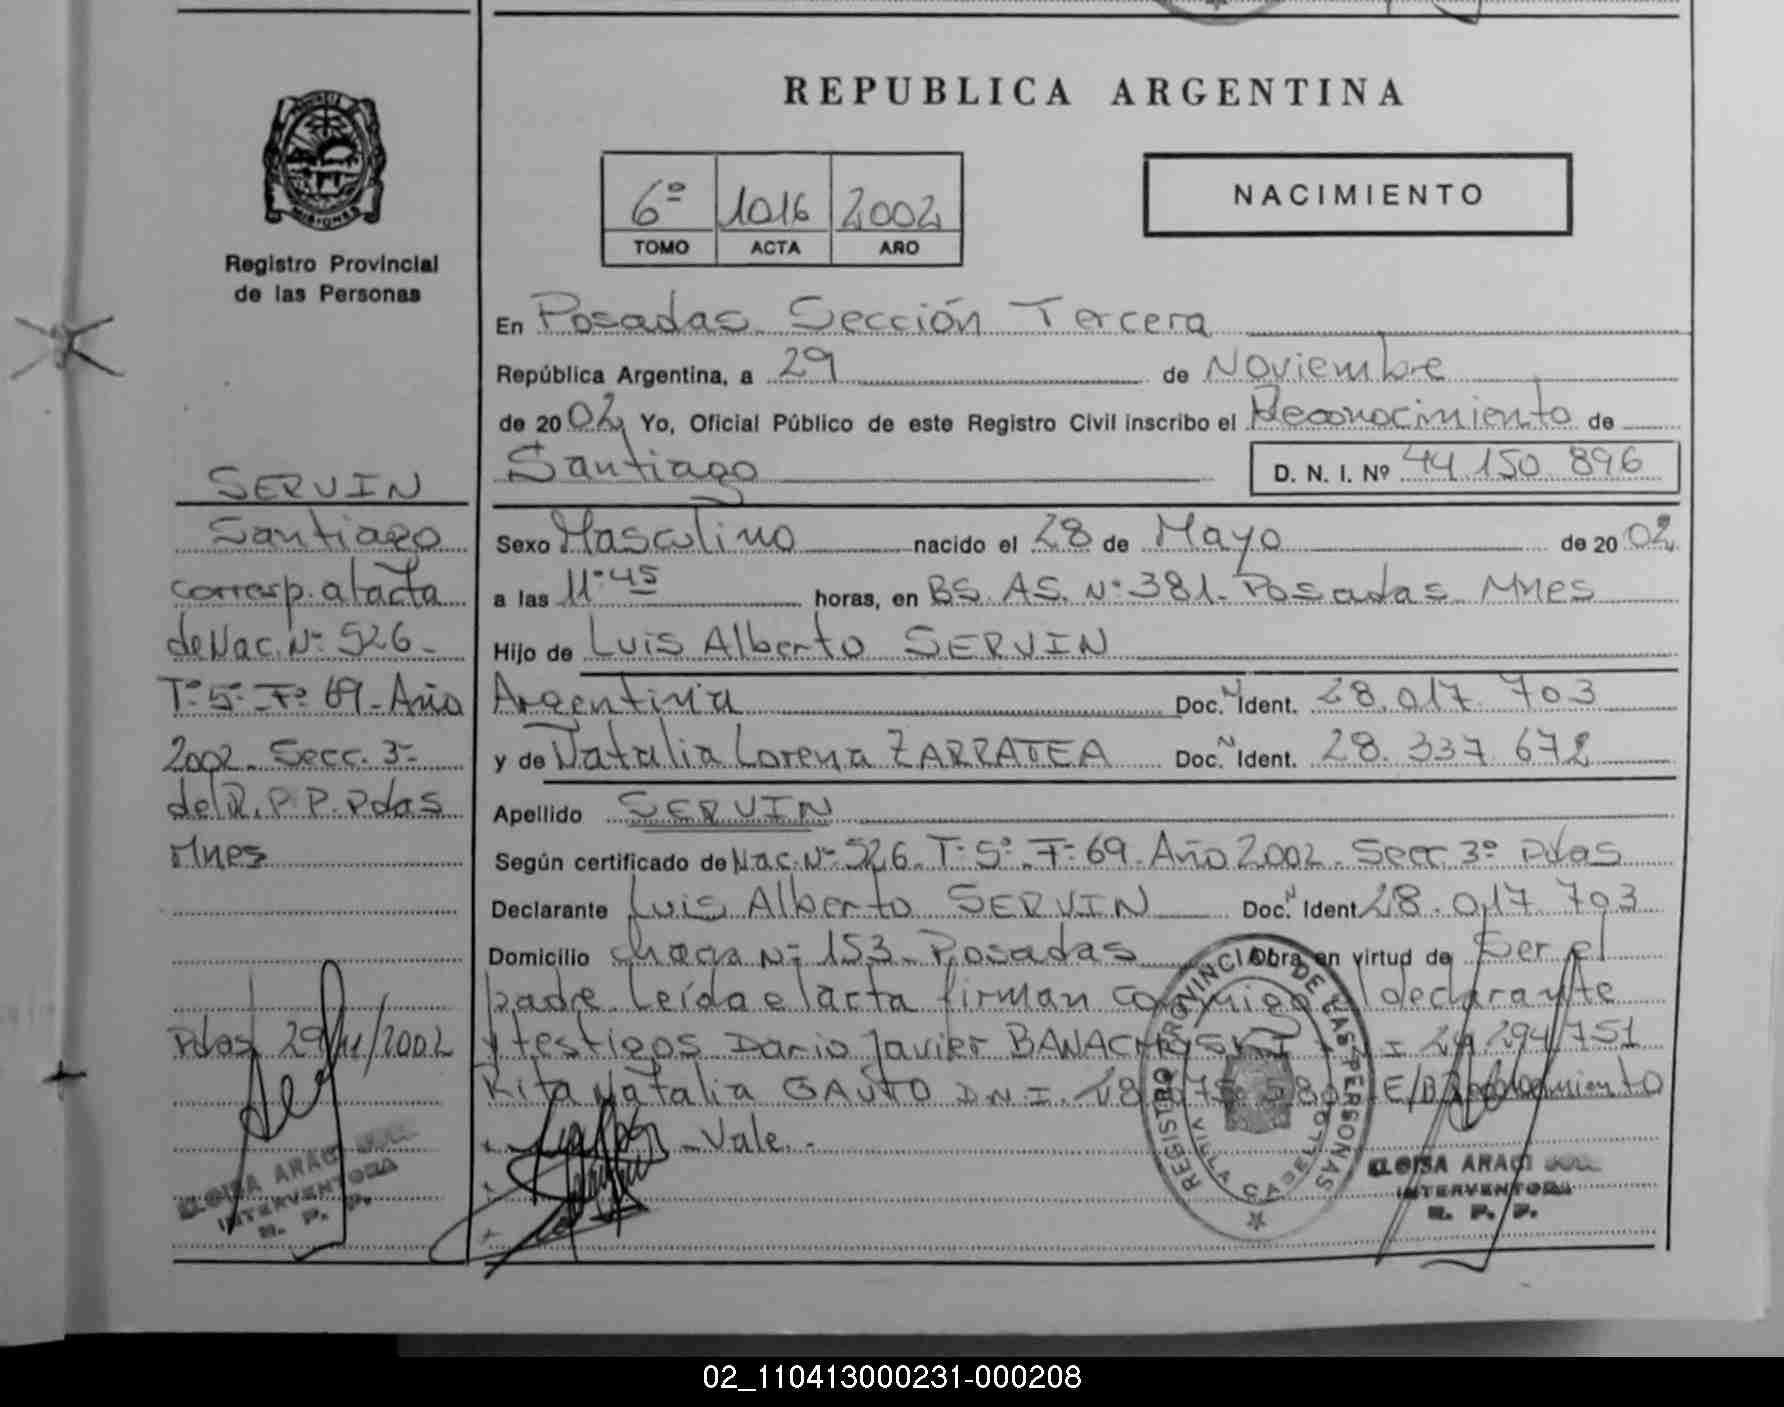 REPUBLICA ARGENTINA
PROVINCIA DE MISIONES
Registro Provincial
de las Personas
6º 1016 2002
TOMO ACTA AÑO
NACIMIENTO
En Posadas Sección Tercera
República Argentina, a 29 de Noviembre
de 2002 Yo, Oficial Público de este Registro Civil inscribo el Reconocimiento de
Santiago D. N. I. Nº 44.150.896
Sexo Masculino nacido el 28 de Mayo de 2002
a las 11º45 horas, en BS. AS. Nº 381. Posadas Mnes
Hijo de Luis Alberto SERVIN
Argentina Doc. N Ident. 28.017.703
y de Natalia Lorena ZARRATEA Doc. N Ident. 28.337.672
Apellido SERVIN
Según certificado de Nac. Nº 526. Tº 5º Fº 69. Año 2002. Secc. 3º Pdas
Declarante Luis Alberto SERVIN Doc. N Ident 28.017.703
Domicilio Nº 153. Posadas Obra en virtud de Ser el
padre. Leída el acta firman conmigo el declarante
y testigos Dario Javier D.N.I 24.294.751
Rita Natalia GAUTO D.N.I. E/B Reconocimiento
- Vale.-
SERVIN
Santiago
corresp. al acta
de Nac. Nº 526-
Tº 5º Fº 69-Año
2002. Secc. 3º
del R.P.P. Pdas
Mnes
Pdas 29/11/2002
ELOISA ARACI
INTERVENTORA
R. P. P.
REGISTRO PROVINCIAL DE LAS PERSONAS
VILLA CABELLO
ELOISA ARACI
INTERVENTORA
R. P. P.
02_110413000231-000208